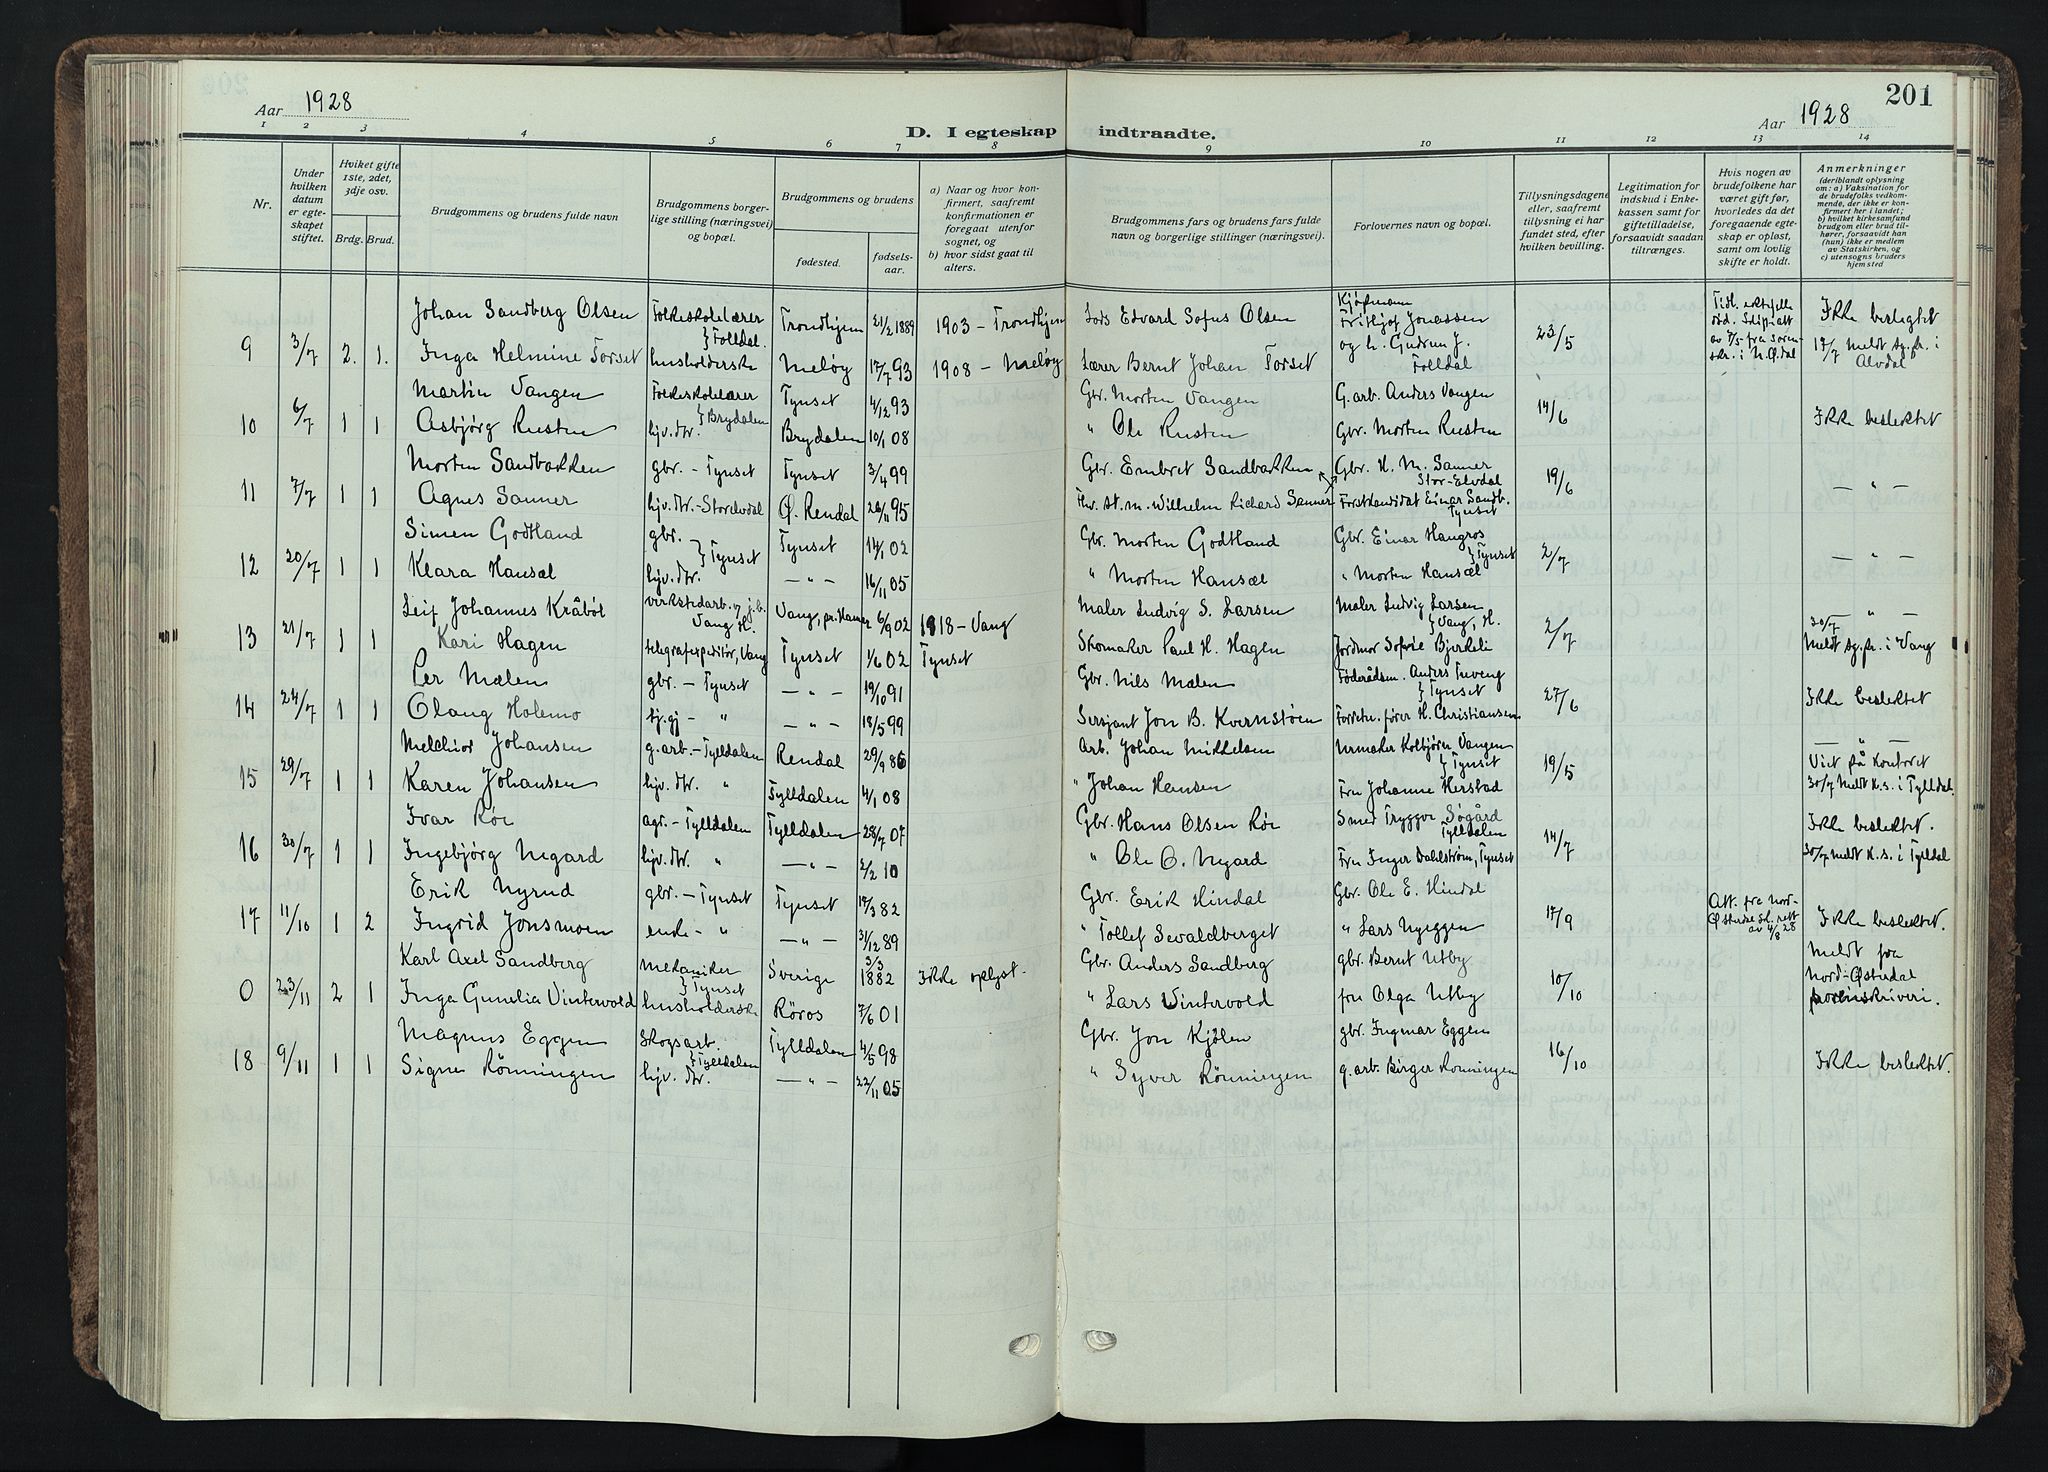 Aar 1928
D. I egteskap indtraadte.
Aar 1928
201
1 2 3 4 5 6 7 8 9 10 11 12 13 14
Nr.
Under hvilken datum er egteskapet stiftet.
Hvilket gifte 1ste, 2det, 3dje osv.
Brdg. Brud.
Brudgommens og brudens fulde navn
Brudgommens borgerlige stilling (næringsvei) og bopæl.
Brudgommens og brudens
fødested. fødselsaar.
a) Naar og hvor konfirmert, saafremt konfirmationen er foregaat utenfor sognet, og
b) hvor sidst gaat til alters.
Brudgommens fars og brudens fars fulde navn og borgerlige stillinger (næringsvei).
Forlovernes navn og bopæl.
Tillysningsdagene eller, saafremt tillysning ei har fundet sted, efter hvilken bevilling.
Legitimation for indskud i Enkekassen samt for giftetilladelse, forsaavidt saadan tiltrænges.
Hvis nogen av brudefolkene har været gift før, hvorledes da det foregaaende egteskap er opløst, samt om lovlig skifte er holdt.
Anmerkninger
(deriblandt oplysning om: a) Vaksination for de brudefolks vedkommende, der ikke er konfirmert her i landet; b) hvilket kirkesamfund brudgom eller brud tilhører, forsaavidt han (hun) ikke er medlem av Statskirken, og c) utensogns bruders hjemsted
Johan Sandberg Olsen Folkeskolelærer } Folldal. Trondhjem 21/2 1889 1903 - Trondhjem Lods Edvard Sofus Olsen Kjøpmann Frithjof Jonassen Ikke beslegtet
9 3/7 2. 1. Inga Helmine Torset husholderske Meløy 17/7 93 1908 - Meløy Lærer Bernt Johan Torset og h. Gudrun J. Folldal 23/5 17/7 Meldt sg.pr. i Alvdal
Martin Vangen Folkeskolelærer } Brydalen Tynset 4/12 93 Gbr. Morten Vangen G.arb. Anders Vangen
10 6/7 1 1 Asbjørg Rusten hjv. dtr. Brydalen 10/1 08 " Ole Rusten Gbr. Morten Rusten 14/6 Ikke beslektet
Morten Sandbakken gbr. - Tynset Tynset 3/4 99 Gbr. Embret Sandbakken Gbr. H. M. Sanner Stor-Elvdal
11 7/7 1 1 Agnes Sanner hjv. dtr. - Storelvdal Ø. Rendal 26/11 95 Wilhelm Richard Sanner Forstkandidat Einar Sandb. Tynset 19/6 — " —
Simen Godtland gbr. } Tynset Tynset 14/1 02 Gbr. Morten Godtland Gbr. Einar Haugros } Tynset
12 20/7 1 1 Klara Hansæl hjv. dtr. — " — 16/11 05 " Morten Hansæl " Morten Hansæl 2/7 — " —
Leif Johannes Kråbøl verkstedarb. v. j.b. Vang H. Vang, pr. Hamar 6/9 02 1918 - Vang Maler Ludvig S. Larsen Maler Ludvig Larsen } Vang, H. — " —
13 21/7 1 1 Kari Hagen telegrafexpeditør, Vang Tynset 1/6 02 Tynset Skomaker Paul H. Hagen Jordmor Sofie Bjerkeli 2/7 20/7 Meldt sg.pr. i Vang
Per Mælen gbr. - Tynset — " — 19/10 91 Gbr. Nils Mælen Føderådsm. Anders Treveng } Tynset
14 24/7 1 1 Olaug Holemo hj.gj - " — " — 18/5 99 Sersjant Jon B. Kvernstøen Forretn.fører H. Christiansen 27/6 Ikke beslektet
Melchior Johansen g.arb. - Tylldalen Rendal 29/9 86 Arb. Johan Mikkelsen Urmaker Kolbjørn Vangen } Tynset — " —
15 29/7 1 1 Karen Johansen hjv. dtr. " Tylldalen 4/1 08 " Johan Hansen Fru Johanne Herstad 19/5 Viet på kontoret 30/7 Meldt k.s. i Tylldal.
Ivar Røe agr. - Tylldalen Tylldalen 28/7 07 Gbr. Hans Olsen Røe Smed Tryggve Søgård Tylldalen Ikke beslektet.
16 30/7 1 1 Ingebjørg Negard hjv. dtr. " — " — 2/2 10 " Ole O. Negard Fru Inger Dahlstrøm, Tynset 14/7 30/7 Meldt k.s. i Tylldal
Erik Nyrud gbr. - Tynset Tynset 19/3 82 Gbr. Erik Hindal Gbr. Ole E. Hindal
17 11/10 1 2 Ingrid Jonsmoen enke - " — " — 31/12 89 " Tollef Sevaldberget " Lars Nyeggen 17/9 Att. fra Nord-Østerdal sk.rett av 4/8 28 Ikke beslektet.
Karl Axel Sandberg mekaniker } Tynset Sverige 3/3 1882 Ikke oplyst. Gbr. Anders Sandberg gbr. Bernt Utby Meldt fra
0 23/11 2 1 Inga Gunelia Vintervold husholderske Røros 7/6 01 " Lars Vintervold fru Olga Utby 10/10 Nord-Østerdal sorenskriveri.
Magnus Eggen Skogsarb. } Tylldalen Tylldalen 4/5 98 Gbr. Jon Kjølen gbr. Ingmar Eggen
18 9/11 1 1 Signe Rønningen hjv. dtr. — " — 22/11 05 " Syver Rønningen g.arb. Birger Rønningen 16/10 Ikke beslektet.